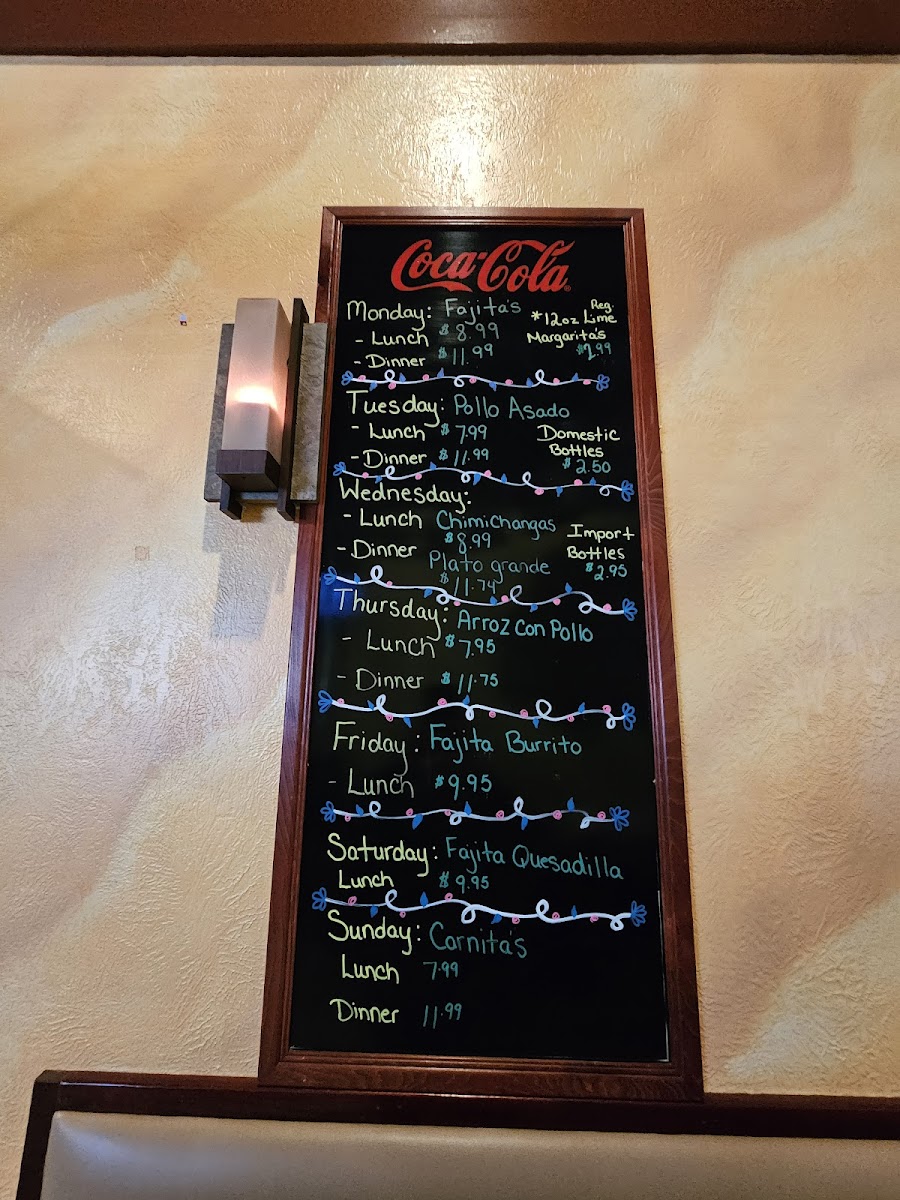 Coca-Cola
Monday: Fajita's
- Lunch $8.99
- Dinner $11.99
Reg.
*12oz Lime
Margarita's
$2.99
Tuesday: Pollo Asado
- Lunch $7.99
- Dinner $11.99
Domestic
Bottles
$2.50
Wednesday:
- Lunch Chimichangas
$8.99
- Dinner Plato grande
$11.74
Import
Bottles
$2.95
Thursday: Arroz con Pollo
- Lunch $7.95
- Dinner $11.75
Friday: Fajita Burrito
- Lunch $9.95
Saturday: Fajita Quesadilla
Lunch $9.95
Sunday: Carnita's
Lunch 7.99
Dinner 11.99